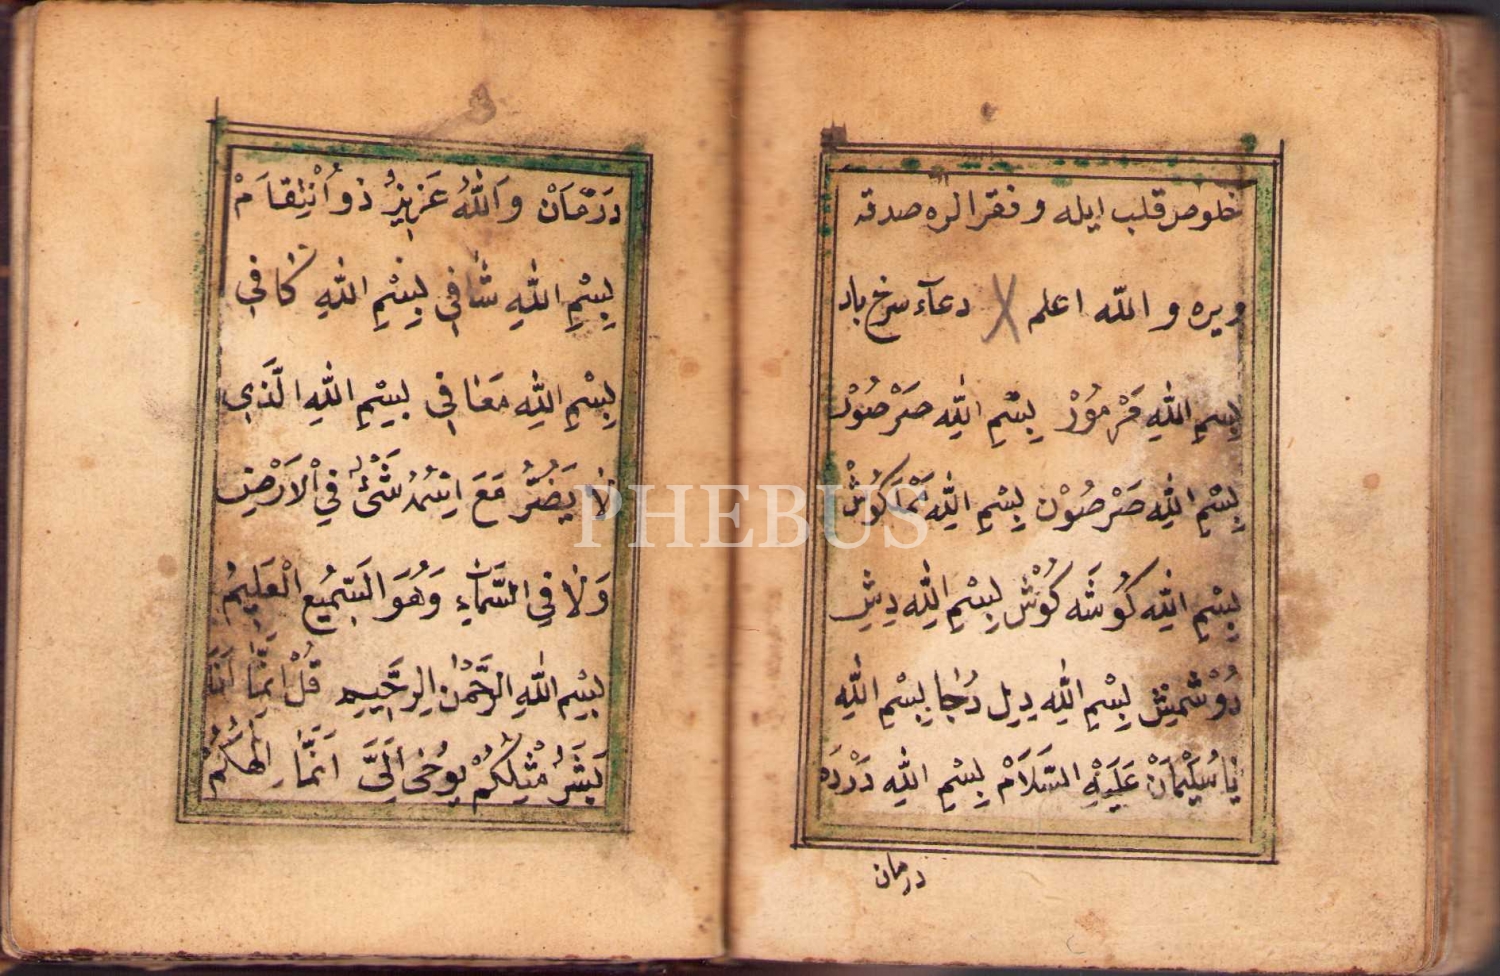 خلوص قلب ايله و فقرالره صدقه
ويره و الله اعلم دعآء سرخ باد
بِسْمِ اللهِ مَرْمُوْرْ بِسْمِ اللهِ صَرْصُوْنْ
بِسْمِ اللهِ صَرْصُوْن بِسْمِ اللهِ
بِسْمِ اللهِ كُوشَه كُوْشْ بِسْمِ اللهِ دِيشِ
دُوْشْمِيْشْ بِسْمِ اللهِ دِيلِ بِسْمِ اللهِ
يَا سُلَيْمَانْ عَلَيْهِ السَّلَامْ بِسْمِ اللهِ دَرْدَه
درمان
دَرْمَانْ وَاللهُ عَزِيزٌ ذُو انْتِقَامْ
بِسْمِ اللهِ شَافِي بِسْمِ اللهِ كَافِي
بِسْمِ اللهِ مَعَافِي بِسْمِ اللهِ الَّذِي
لَا يَضُرُّ مَعَ اسْمُهُ شَئٌ فِي الْاَرْضِ
وَلَا فِي السَّمَاءِ وَهُوَ السَّمِيعُ الْعَلِيمُ
بِسْمِ اللهِ الرَّحْمٰنِ الرَّحِيمِ قُلْ اِنَّمَا اَنَا
بَشَرٌ مِثْلُكُمْ يُوحٰى اِلَيَّ اَنَّمَا اِلٰهُكُمْ
PHEBUS